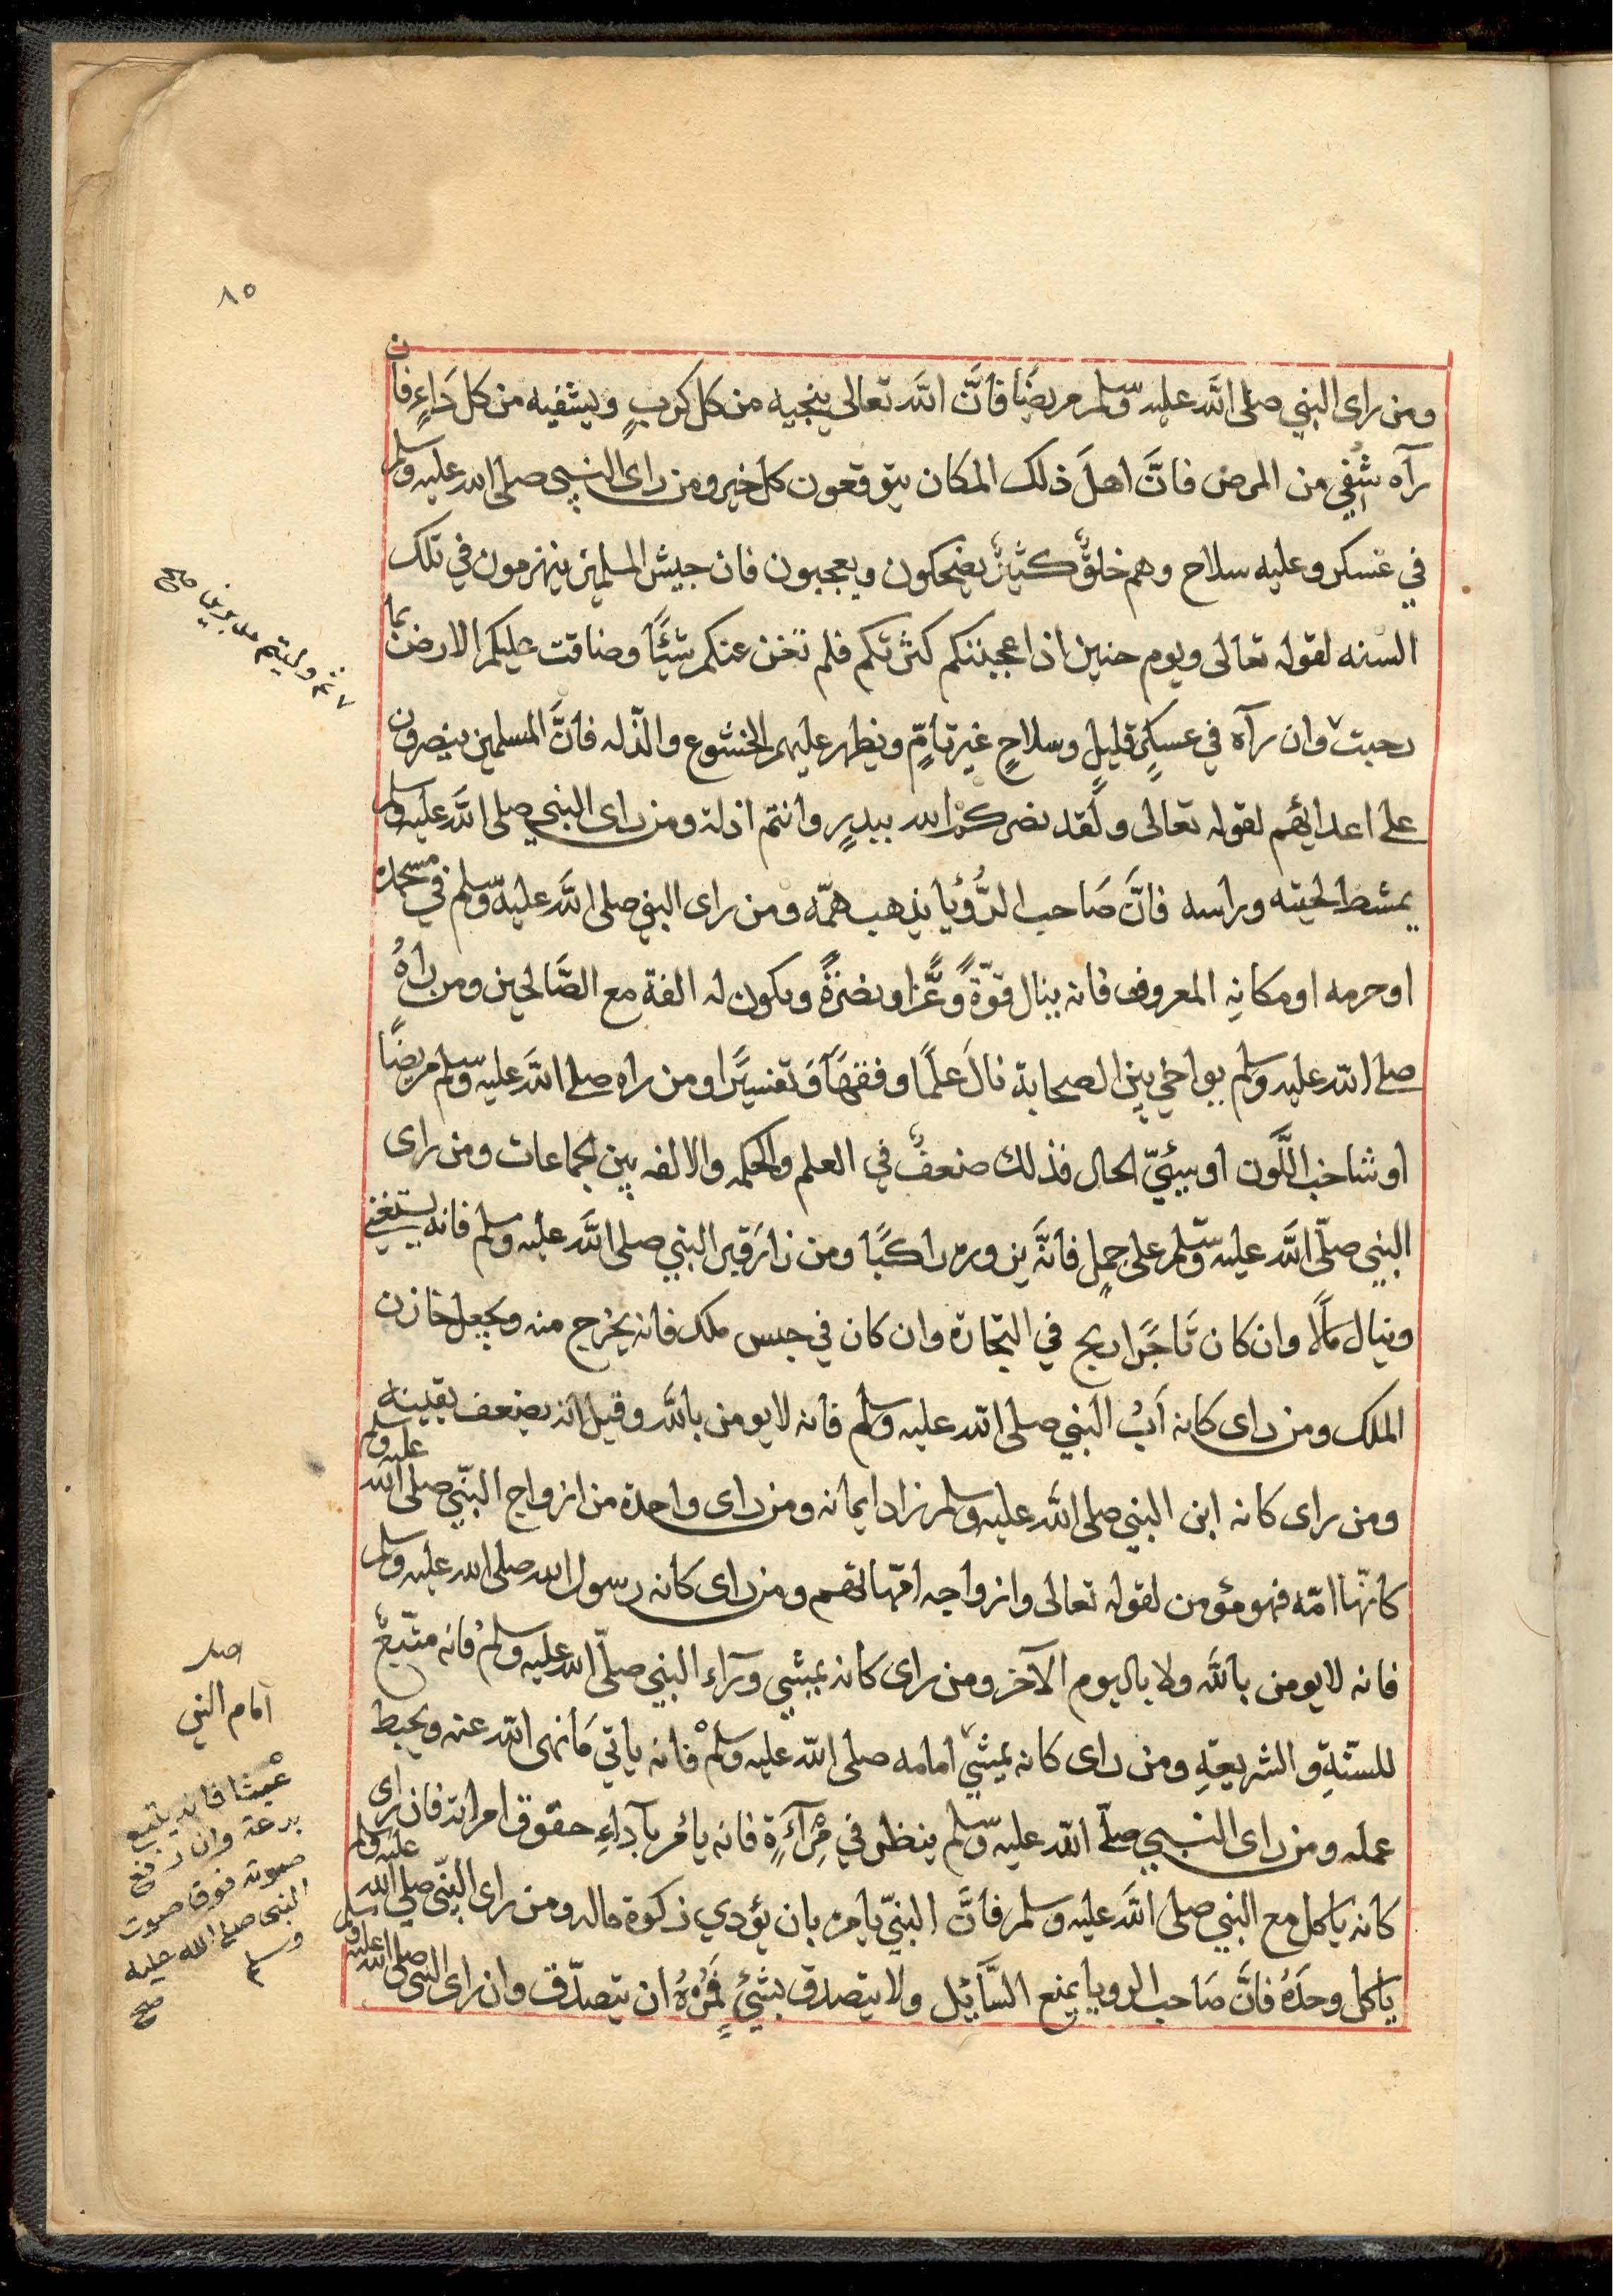 ٨٥
ومن راى النبي صلى الله عليه وسلم مريضًا فانَّ الله تعالى ينجيه من كل كربٍ ويشفيه من كل دَاءٍ فان
رآه شُفِي من المرض فانَّ اهلَ ذلك المكان يتوقعون كل خير ومن راى النبي صلى الله عليه وسلم
في عسكر وعليه سلاح وهم خلقٌ كثيرٌ يضحكون ويعجبون فان جيش المسلمين ينهزمون في تلك
السنه لقوله تعالى ويوم حنين اذ اعجبتكم كثرتكم فلم تغن عنكم شيئًا وضاقت عليكم الارض بما
رحبت وان رآه في عسكرٍ قليلٍ وسلاحٍ غيرِ تامٍّ ويظهر عليهم الخشوع والذله فانَّ المسلمين ينصرون
على اعدائهم لقوله تعالى ولقد نصركم الله ببدرٍ وانتم اذلة ومن راى النبي صلى الله عليه وسلم
يمشط لحيته وراسه فانَّ صَاحب الرُّؤيا يذهب همّه ومن راى النبي صلى الله عليه وسلم في مسجده
او حرمه او مكانهِ المعروف فانه ينال قوّةً وعًّزا ونصرةً ويكون له الفة مع الصَّالحين ومن راهُ
صلى الله عليه وسلم يواخي بين الصحابة نالَ علمًا وفقهًا وَتفسيرًا ومن راه صلى الله عليه وسلم مريضًا
او شاخب اللَّون او سيئيّ الحال فذلك ضعفٌ في العلم والحكمه والالفه بين الجماعات ومن راى
النبي صلّى الله عليه وسّلم على جملٍ فانَّه يزوره راكبًا ومن زارَ قبر النبي صلى الله عليه وسلم فانه يستغني
وينال مَالًا وان كان تَاجرًا ربح في التجارة وان كان في حبس ملك فانه يخرج منه ويجعل خازن
الملك ومن راى كانه اَبُ النبي صلى الله عليه وسلم فانه لا يومن بالله وقيل انه يضعف يقينه
ومن راى كانه ابن النبي صلى الله عليه وسلم زاد ايمانه ومن راى واحدة من ازواج النبّي صلى الله عليه وسلم
كانهّا امّه فهو مؤمن لقوله تعالى وازواجه امّهاتهم ومن راى كانه رسول الله صلى الله عليه وسلم
فانه لا يومن بالله ولا باليوم الآخر ومن راى كانه يمشي ورآء النبي صلّى الله عليه وسلم فانه متّبعٌ
للسنّةِ والشريعةِ ومن راى كانه يمشي امامه صلى الله عليه وسلم فانه ياتي مَا نهى الله عنه ويحبط
عمله ومن راى النبي صلّى الله عليه وسّلم ينظر في مِرْآءَةٍ فانه يامُر بآداءِ حقوق امراته فان راى
كانه ياكل مع النبي صلى الله عليه وسلم فانَّ النبيّ يامره بان يؤدي زكوة ماله ومن راى النبّي صلي الله عليه وسلم
ياكل وحدَهُ فانَّ صَاحب الرويا يمنع السَّآئِل ولا يتصدق بشئٍ فمُرْهُ ان يتصدّق وان راى النبي صلى الله عليه وسلم
ثم وليتم مدبرين صح
امام النبي
عيشًا فانه يتبع
بدعة وان رفع
صوته فوق صوت
النبي صلى الله عليه
وسلم
صح